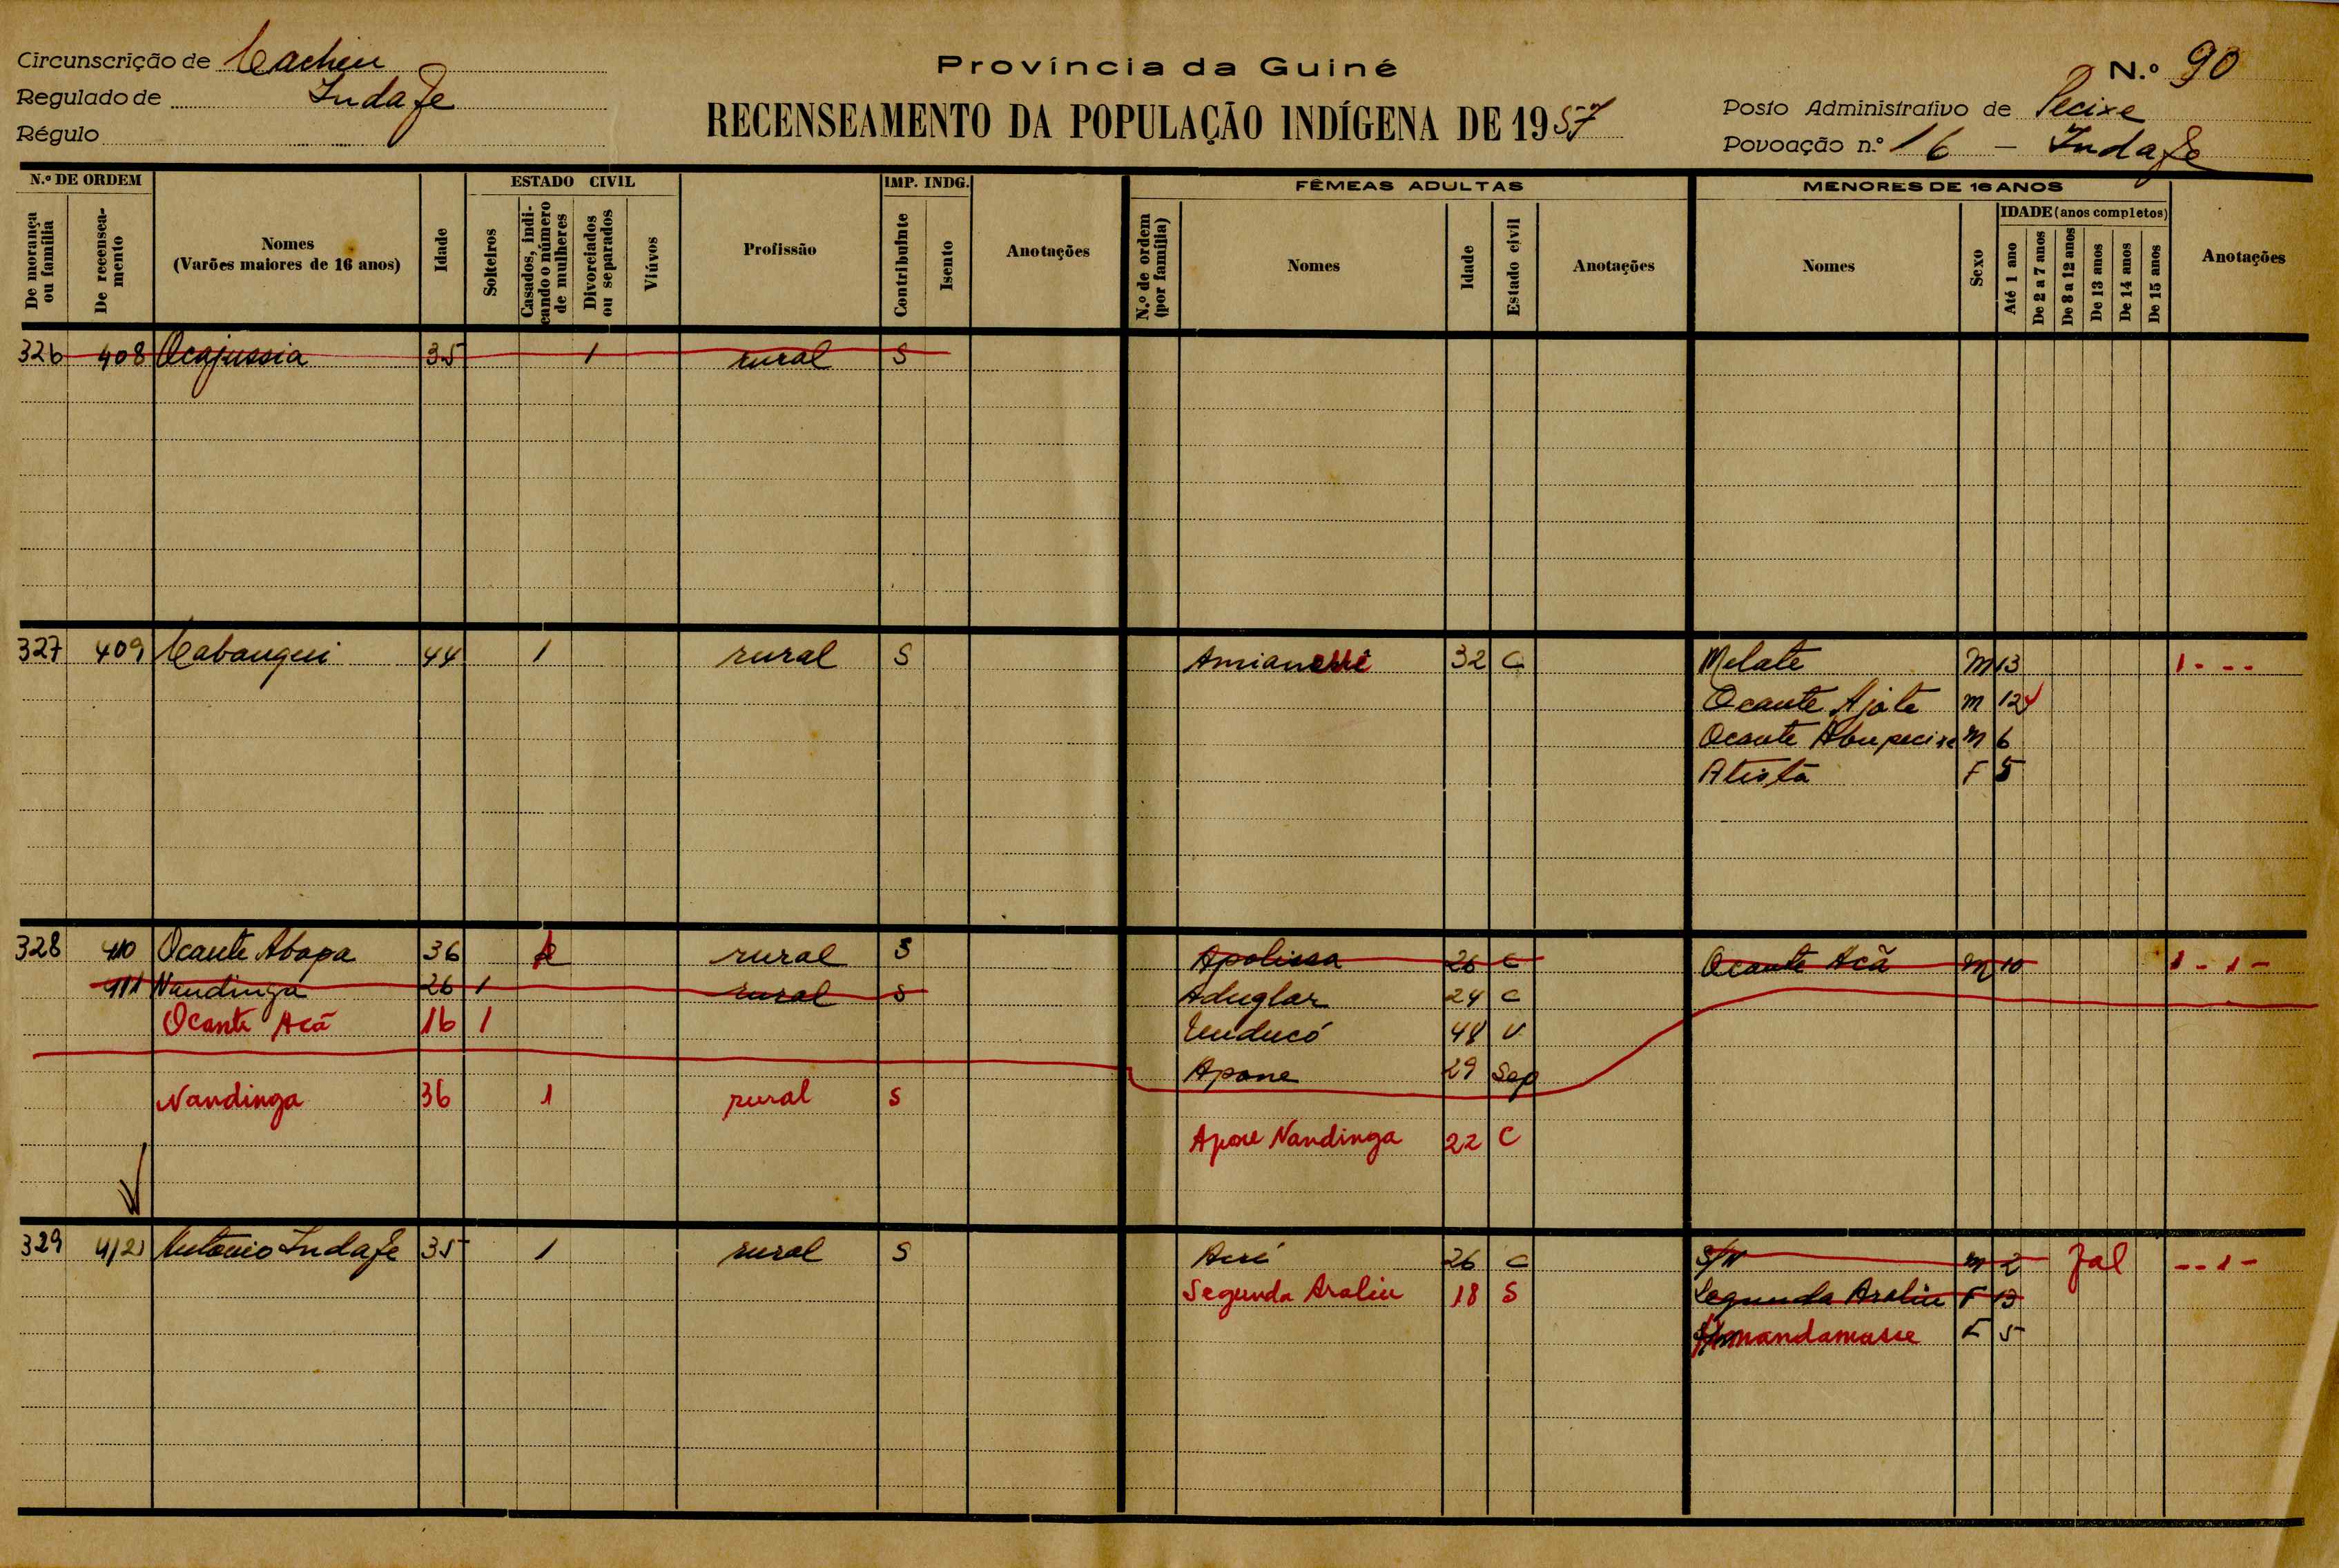 Circunscrição de Cacheu
Regulado de Indafe
Régulo
Província da Guiné
RECENSEAMENTO DA POPULAÇÃO INDÍGENA DE 1957
N.º 90
Posto Administrativo de Pecixe
Povoação n.º 16 - Indafe
N.º DE ORDEM
De morança ou família
De recenseamento
Nomes
(Varões maiores de 16 anos)
Idade
ESTADO CIVIL
Solteiros
Casados, indicando o número de mulheres
Divorciados ou separados
Viúvos
Profissão
IMP. INDG.
Contribuinte
Isento
Anotações
FÊMEAS ADULTAS
N.º de ordem (por família)
Nomes
Idade
Estado civil
Anotações
MENORES DE 16 ANOS
Nomes
Sexo
IDADE (anos completos)
Até 1 ano
De 2 a 7 anos
De 8 a 12 anos
De 13 anos
De 14 anos
De 15 anos
Anotações
326 408 Ocajussia 35 1 rural S
327 409 Cabangui 44 1 rural S Amianessé 32 C Melate M 13 1 - - -
Ocante Ajate M 12
Ocante Abupecixe M 6
Atistã F 5
328 410 Ocante Abapa 36 rural S Apolissa 26 C Ocante Acã M 10 1 - 1 -
411 Nandinga 26 1 rural S Aduglar 24 C
Ocante Acã 16 1 Unducó 48 V
Apone 29 Sep
Nandinga 36 1 rural S
Apone Nandinga 22 C
329 412 António Indafe 35 1 rural S Acri 26 C S/N M 2 fal - - 1 -
Segunda Araliu 18 S Segunda Araliu F 13
mandamasse F 5